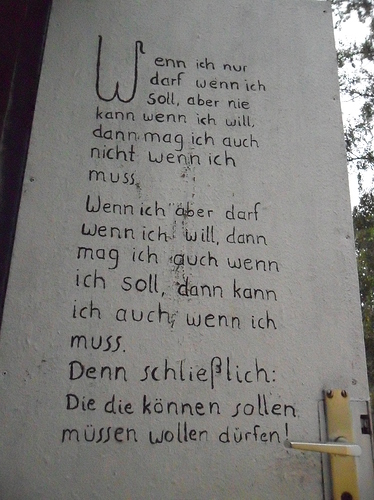 Wenn ich nur
darf wenn ich
soll, aber nie
kann wenn ich will,
dann mag ich auch
nicht wenn ich
muss.
Wenn ich aber darf
wenn ich will, dann
mag ich auch wenn
ich soll, dann kann
ich auch, wenn ich
muss.
Denn schließlich:
Die die können sollen
müssen wollen dürfen!